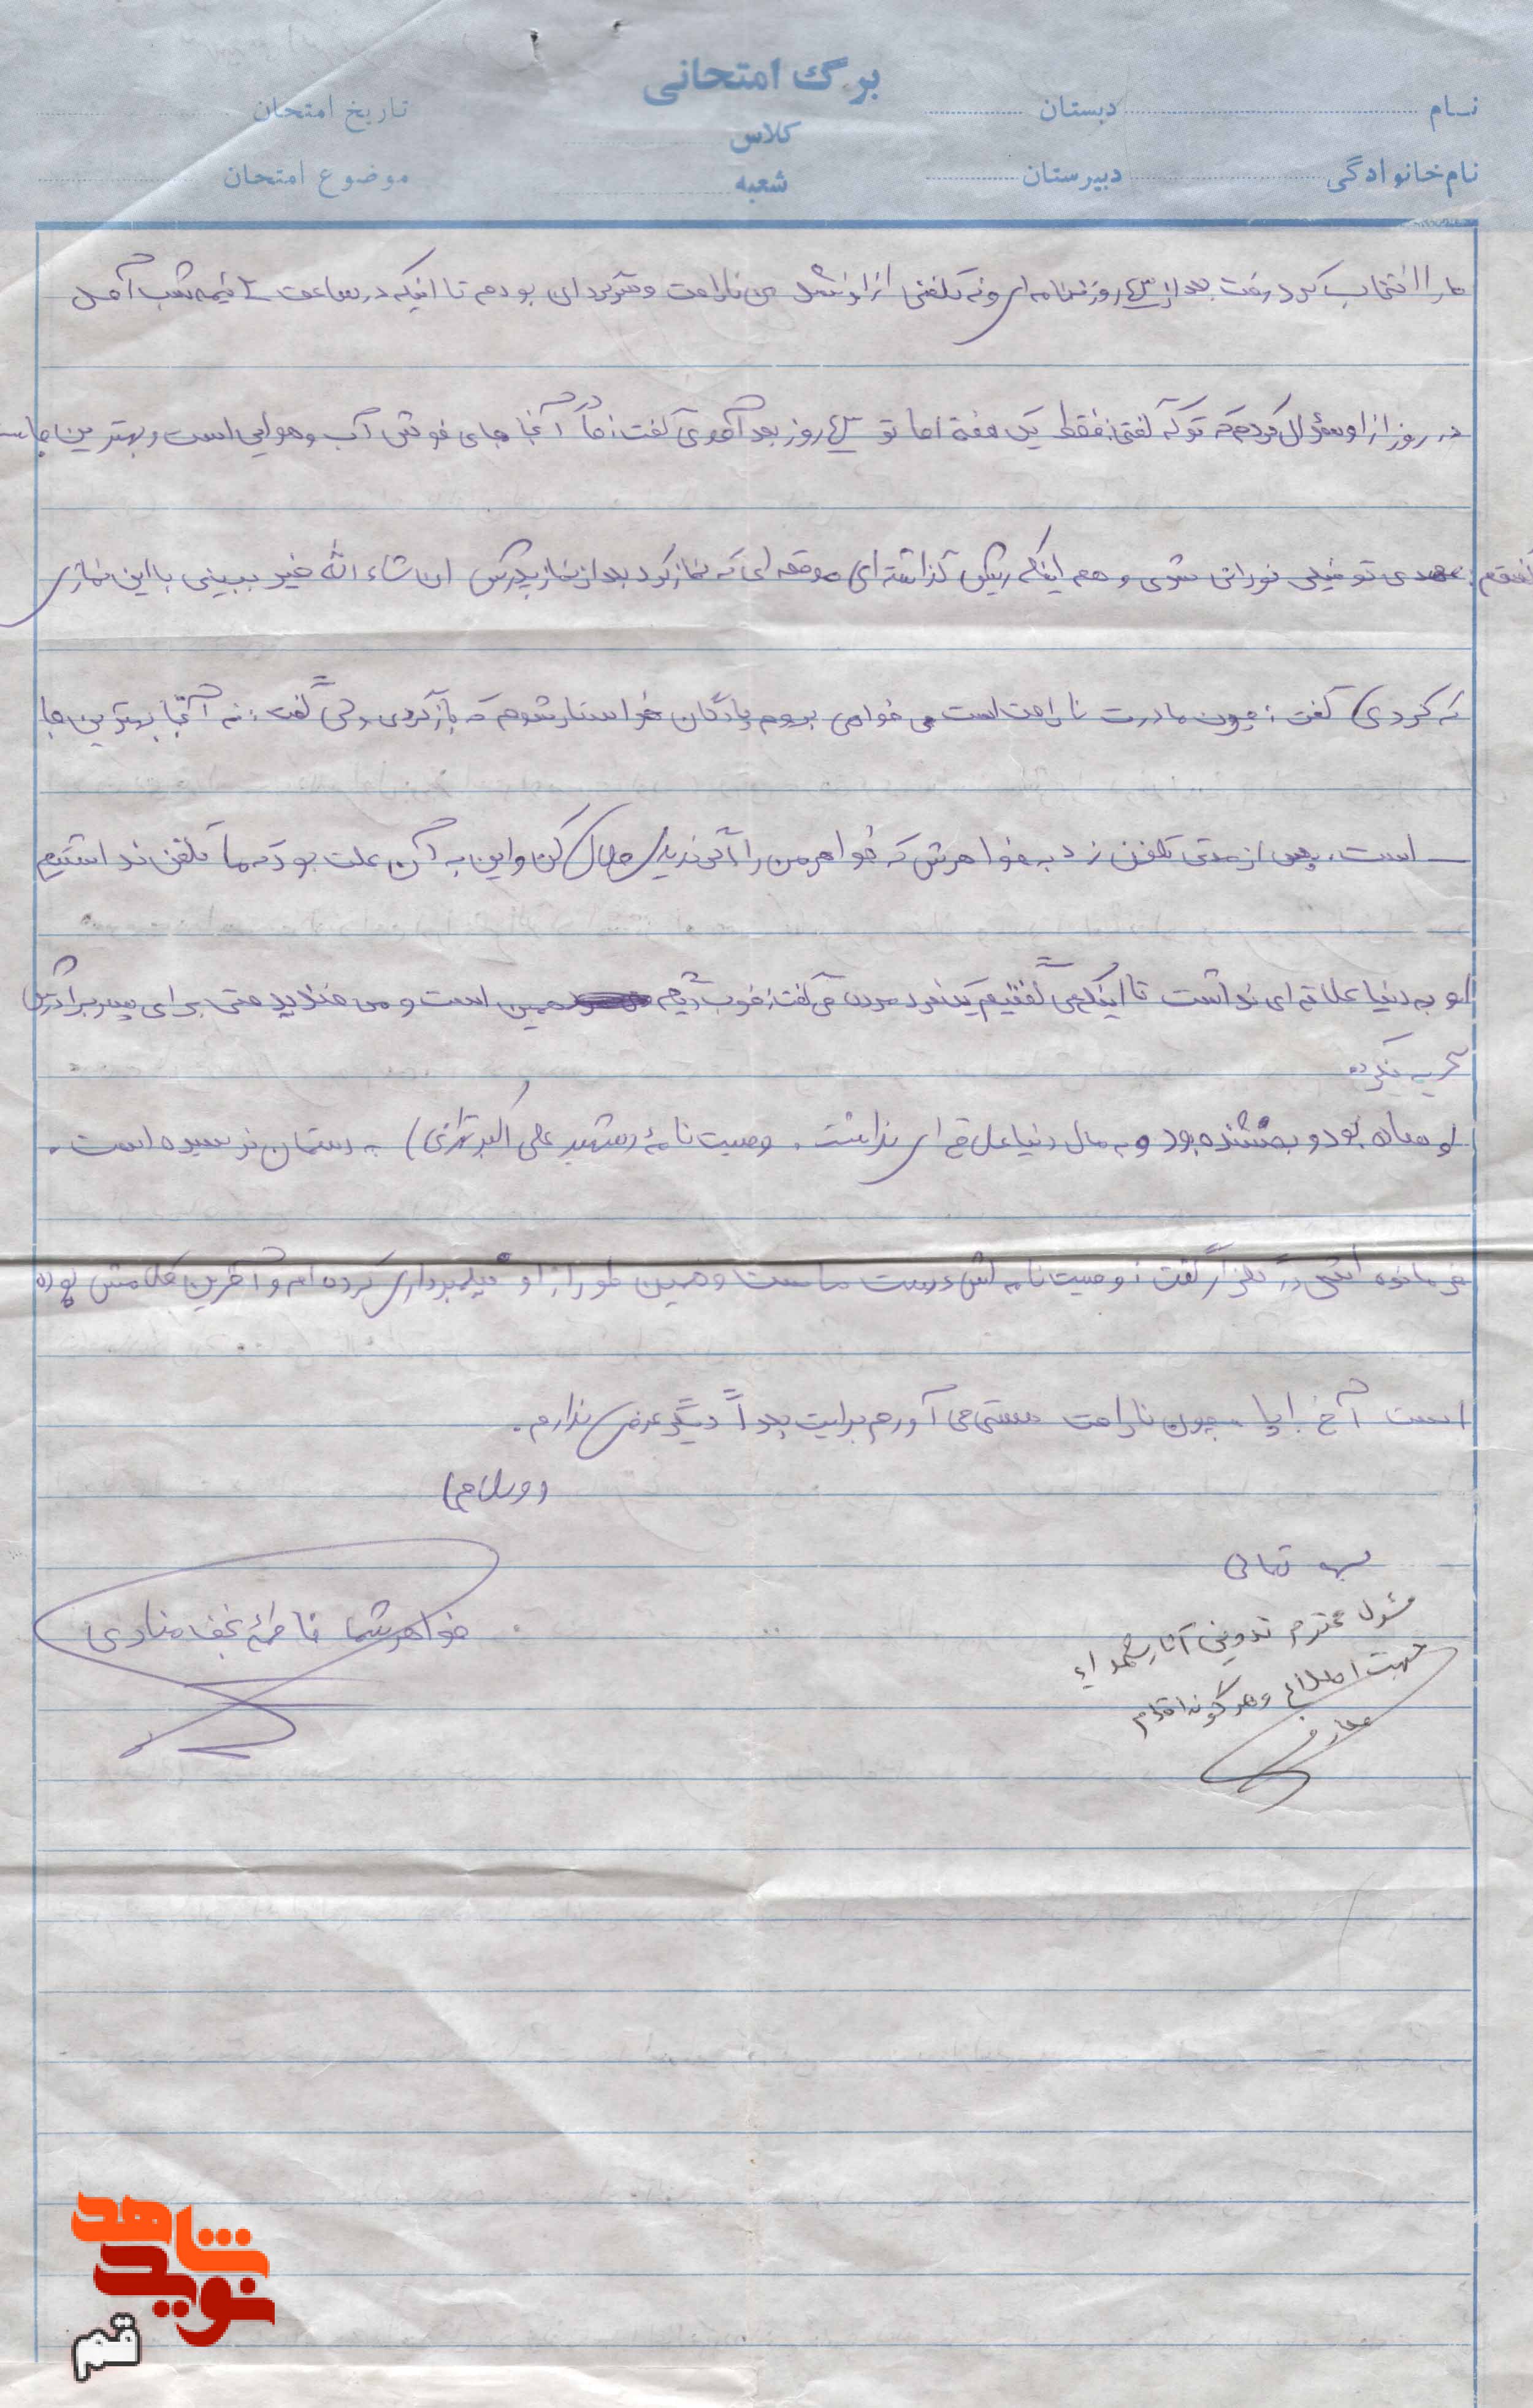 برگ امتحانی
نام دبستان تاریخ امتحان
کلاس
نام خانوادگی دبیرستان موضوع امتحان
شعبه
ما را انتخاب کرد رفت بعد از روز نه نامه ای و نه تلفنی از او نشد من ناراحت و بودم تا اینکه در ساعت ۲ نیمه شب آمد
در روز از او سؤال کردم که تو که گفتی فقط یک هفته اما تو روز بعد آمدی گفت: مادر آنجا جای خوش آب و هوایی است و بهترین جا
گفتم: مهدی تو خیلی نورانی شدی و هم اینکه ریش گذاشته ای موقعه ای که نماز کرد بعد از نماز پدرش ان شاء الله خیر ببینی با این نمازی
که کردی) گفت: چون مادرت ناراحت است می خواهی بروم پادگان خواستار شوم که بازگردی ولی گفت: نه آنجا بهترین جا
است. بعد از مدتی تلفن زد به خواهرش که خواهر من را حلال کن و این به آن علت بود که ما تلفن نداشتیم
او به دنیا علاقه ای نداشت تا اینکه می گفتیم می گفت: خوب است و می خندید حتی برای پسر برادرش
گریه نکرده
او ساده بود و بخشنده بود و به مال دنیا علاقه ای نداشت. وصیت نامهٔ (شهید علی اکبر) به دستمان نرسیده است.
فرمانده در گلزار گفت: وصیت نامه اش دست ماست و همین طور از او فیلمبرداری کرده ام و آخرین کلامش بوده
است آخ بابا. چون ناراحت هستی می آورم برایت بعداً دیگر عرضی ندارم.
(وسلام)
بسمه تعالی
مسئول محترم تدوین آثار شهداء
جهت اطلاع و هرگونه اقدام
خواهر شما فاطمهٔ نجف منادی
شاهد
نوید
قم